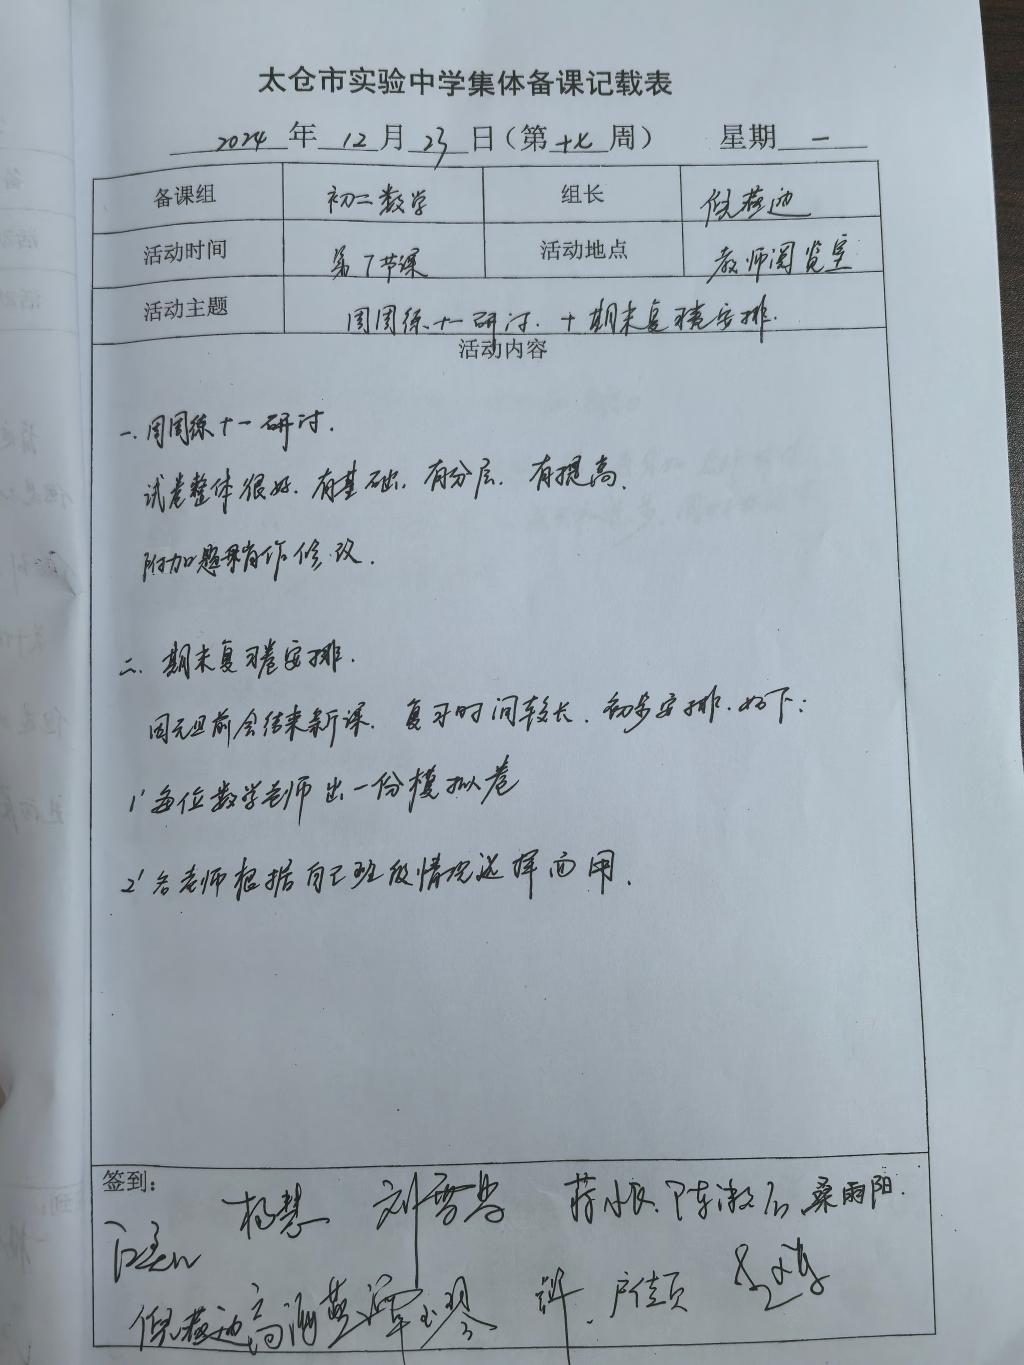 太仓市实验中学集体备课记载表
2024 年 12 月 23 日（第 十七 周） 星期 一
备课组 初二数学 组长 倪燕迪
活动时间 第7节课 活动地点 教师阅览室
活动主题 周周练十一研讨. + 期末复习卷安排.
活动内容
一. 周周练十一研讨.
试卷整体很好. 有基础. 有分层. 有提高.
附加题稍作修改.
二. 期末复习卷安排.
因元旦前会结束新课. 复习时间较长. 初步安排. 如下:
1' 每位数学老师出一份模拟卷
2' 各老师根据自己班级情况选择而用.
签到:
杨慧 桑雨阳.
倪燕迪